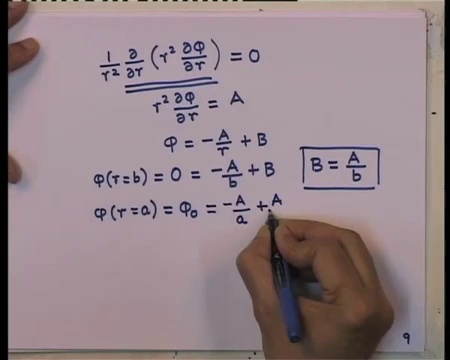 1/r² ∂/∂r (r² ∂φ/∂r) = 0
r² ∂φ/∂r = A
φ = -A/r + B
φ(r=b) = 0 = -A/b + B    B = A/b
φ(r=a) = φ₀ = -A/a + A
9